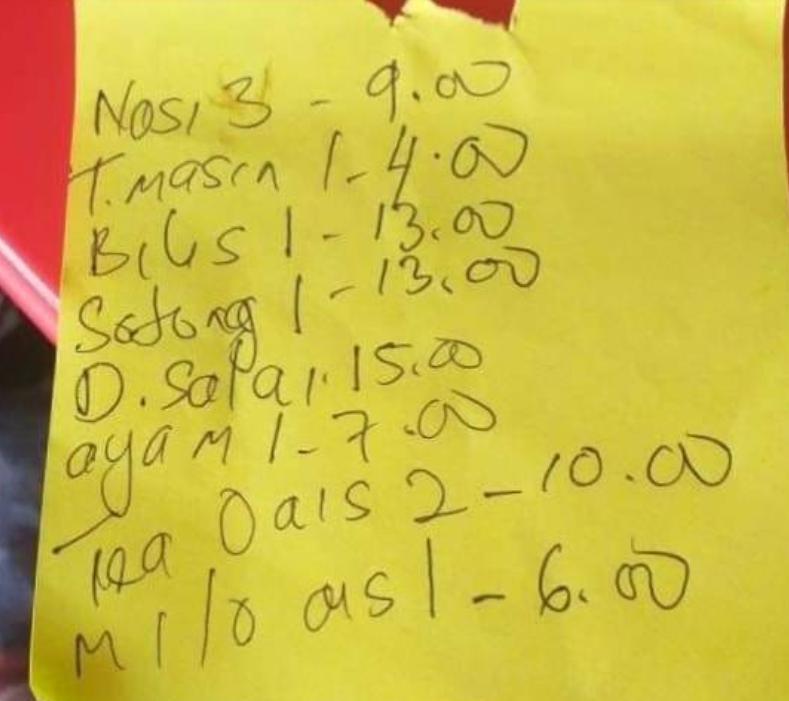 Nasi 3 - 9.00
T. masin 1 - 4.00
Bilis 1 - 13.00
Sotong 1 - 13.00
D. Salai. 15.00
ayam 1 - 7.00
Tea O ais 2 - 10.00
Milo ais 1 - 6.00